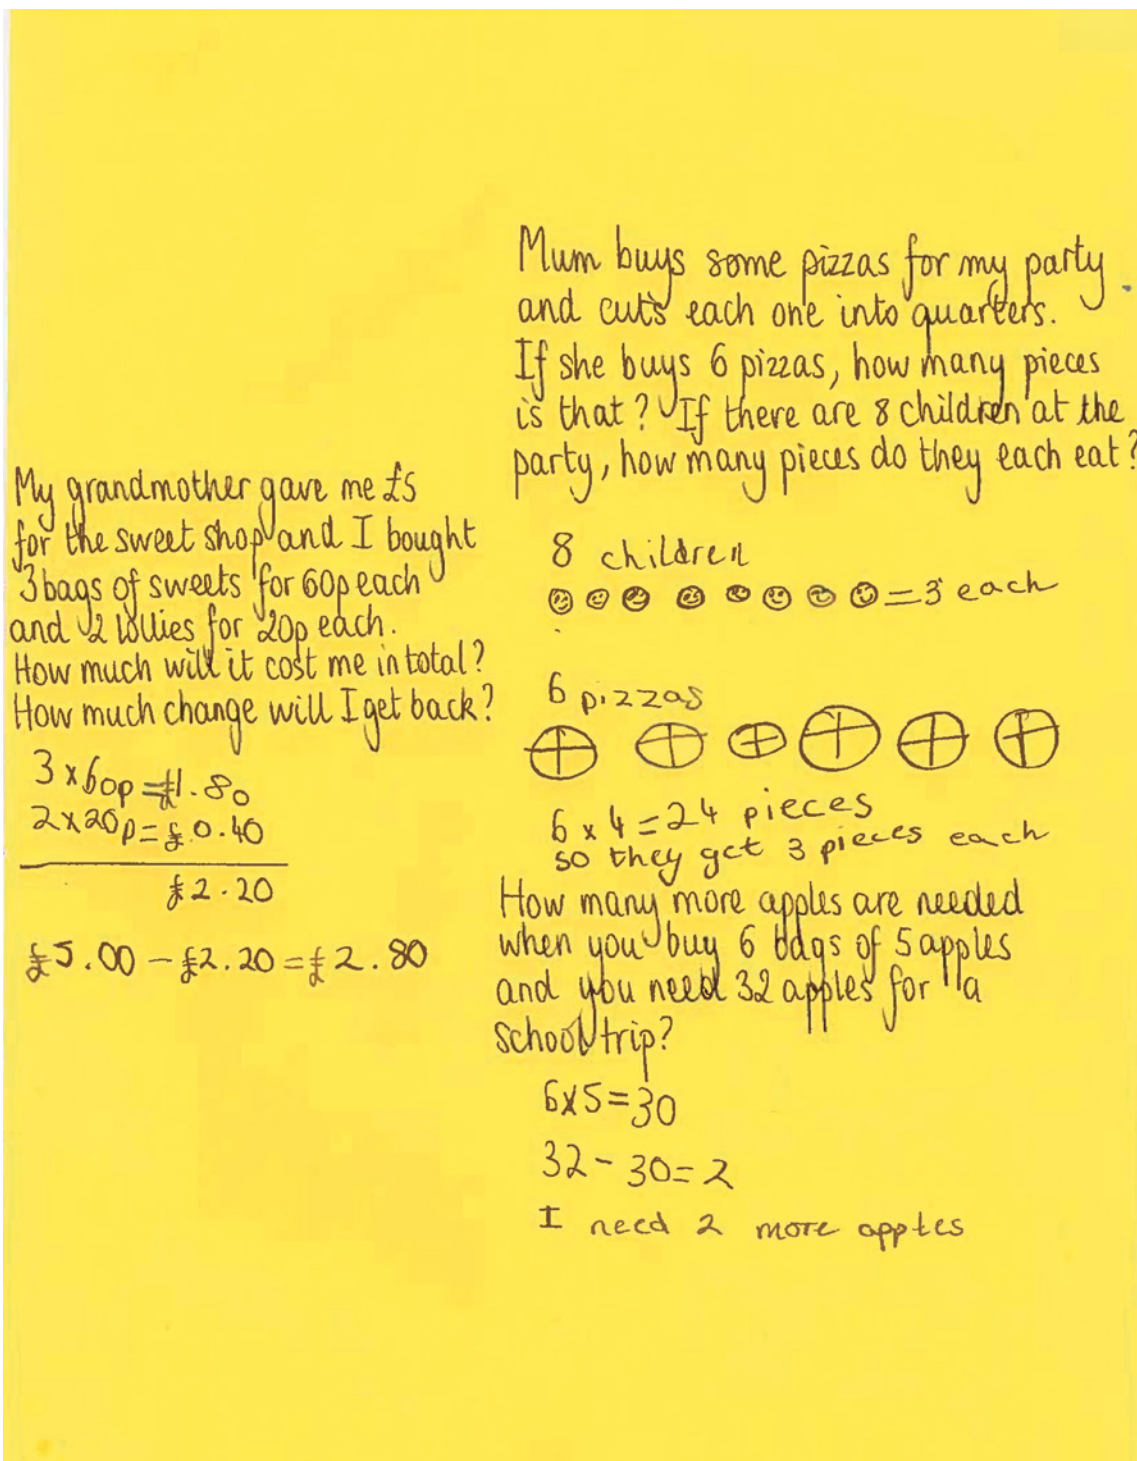 My grandmother gave me £5
for the sweet shop and I bought
3 bags of sweets for 60p each
and 2 lollies for 20p each.
How much will it cost me in total?
How much change will I get back?
3 x 60p = £1.80
2 x 20p = £0.40
£2.20
£5.00 - £2.20 = £2.80
Mum buys some pizzas for my party
and cuts each one into quarters.
If she buys 6 pizzas, how many pieces
is that? If there are 8 children at the
party, how many pieces do they each eat?
8 children
= 3 each
6 pizzas
6 x 4 = 24 pieces
so they get 3 pieces each
How many more apples are needed
when you buy 6 bags of 5 apples
and you need 32 apples for a
school trip?
6 x 5 = 30
32 - 30 = 2
I need 2 more apples